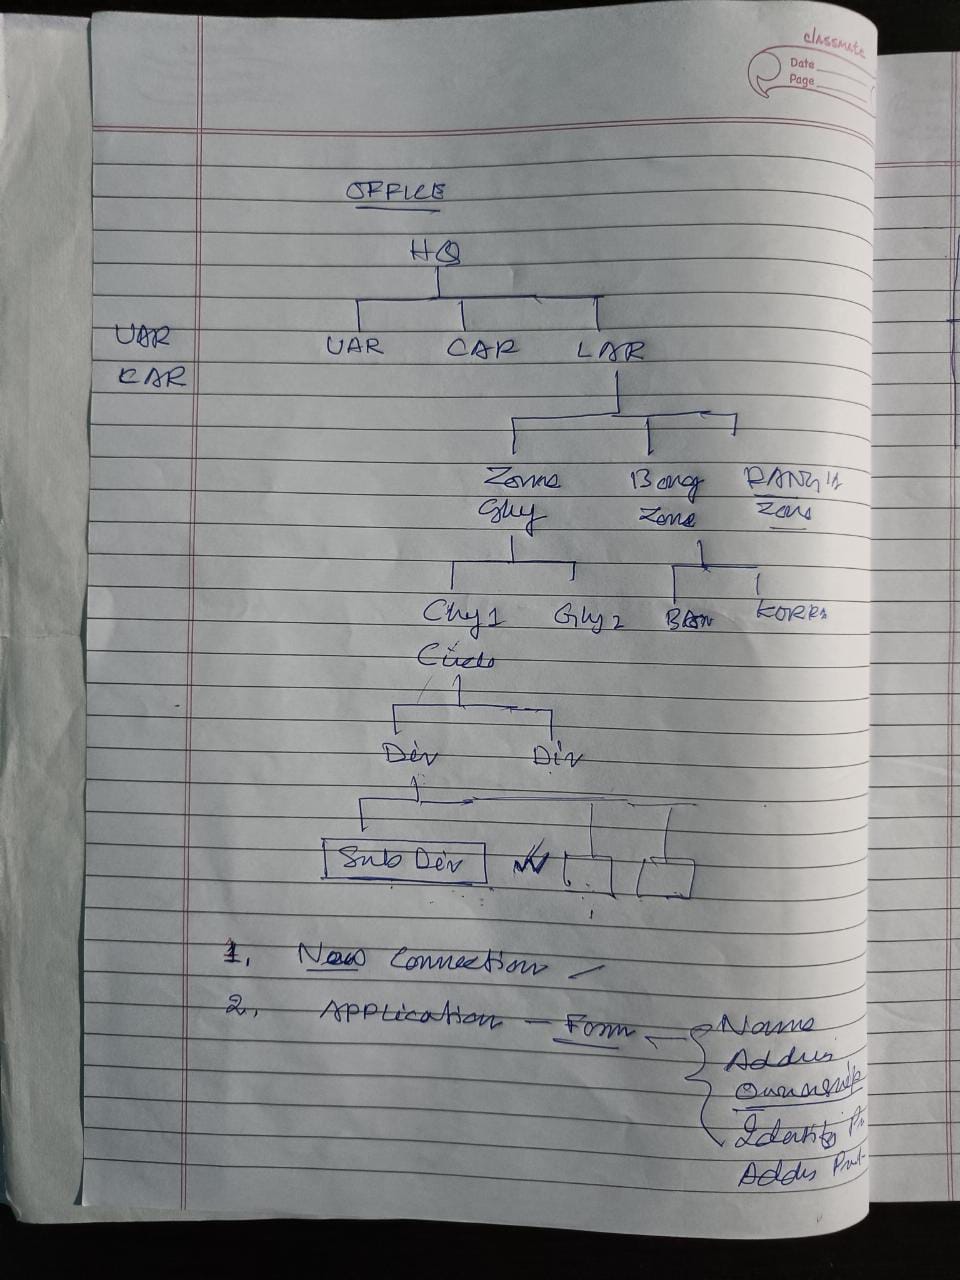 classmate
Date
Page
OFFICE
HQ
UAR
CAR
LAR
UAR
CAR
Zone
Ghy
Bong
Zone
RANGIA
Zone
Ghy 1
Ghy 2
BON
KOKRA
Circle
Div
Div
Sub Div
1. New Connection
2. Application - Form - Name
Address
Ownership
Identity Pr
Addrs Proof